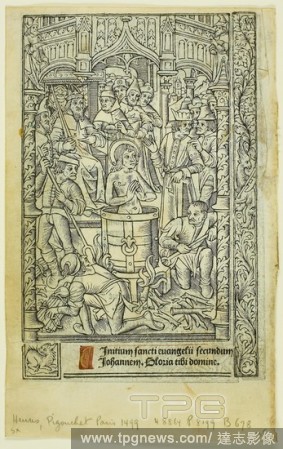 Initium sancti euangelii secundum
Johannem. Gloria tibi domine.
Heures, Pigouchet Paris 1499
TPG
www.tpgnews.com/達志影像